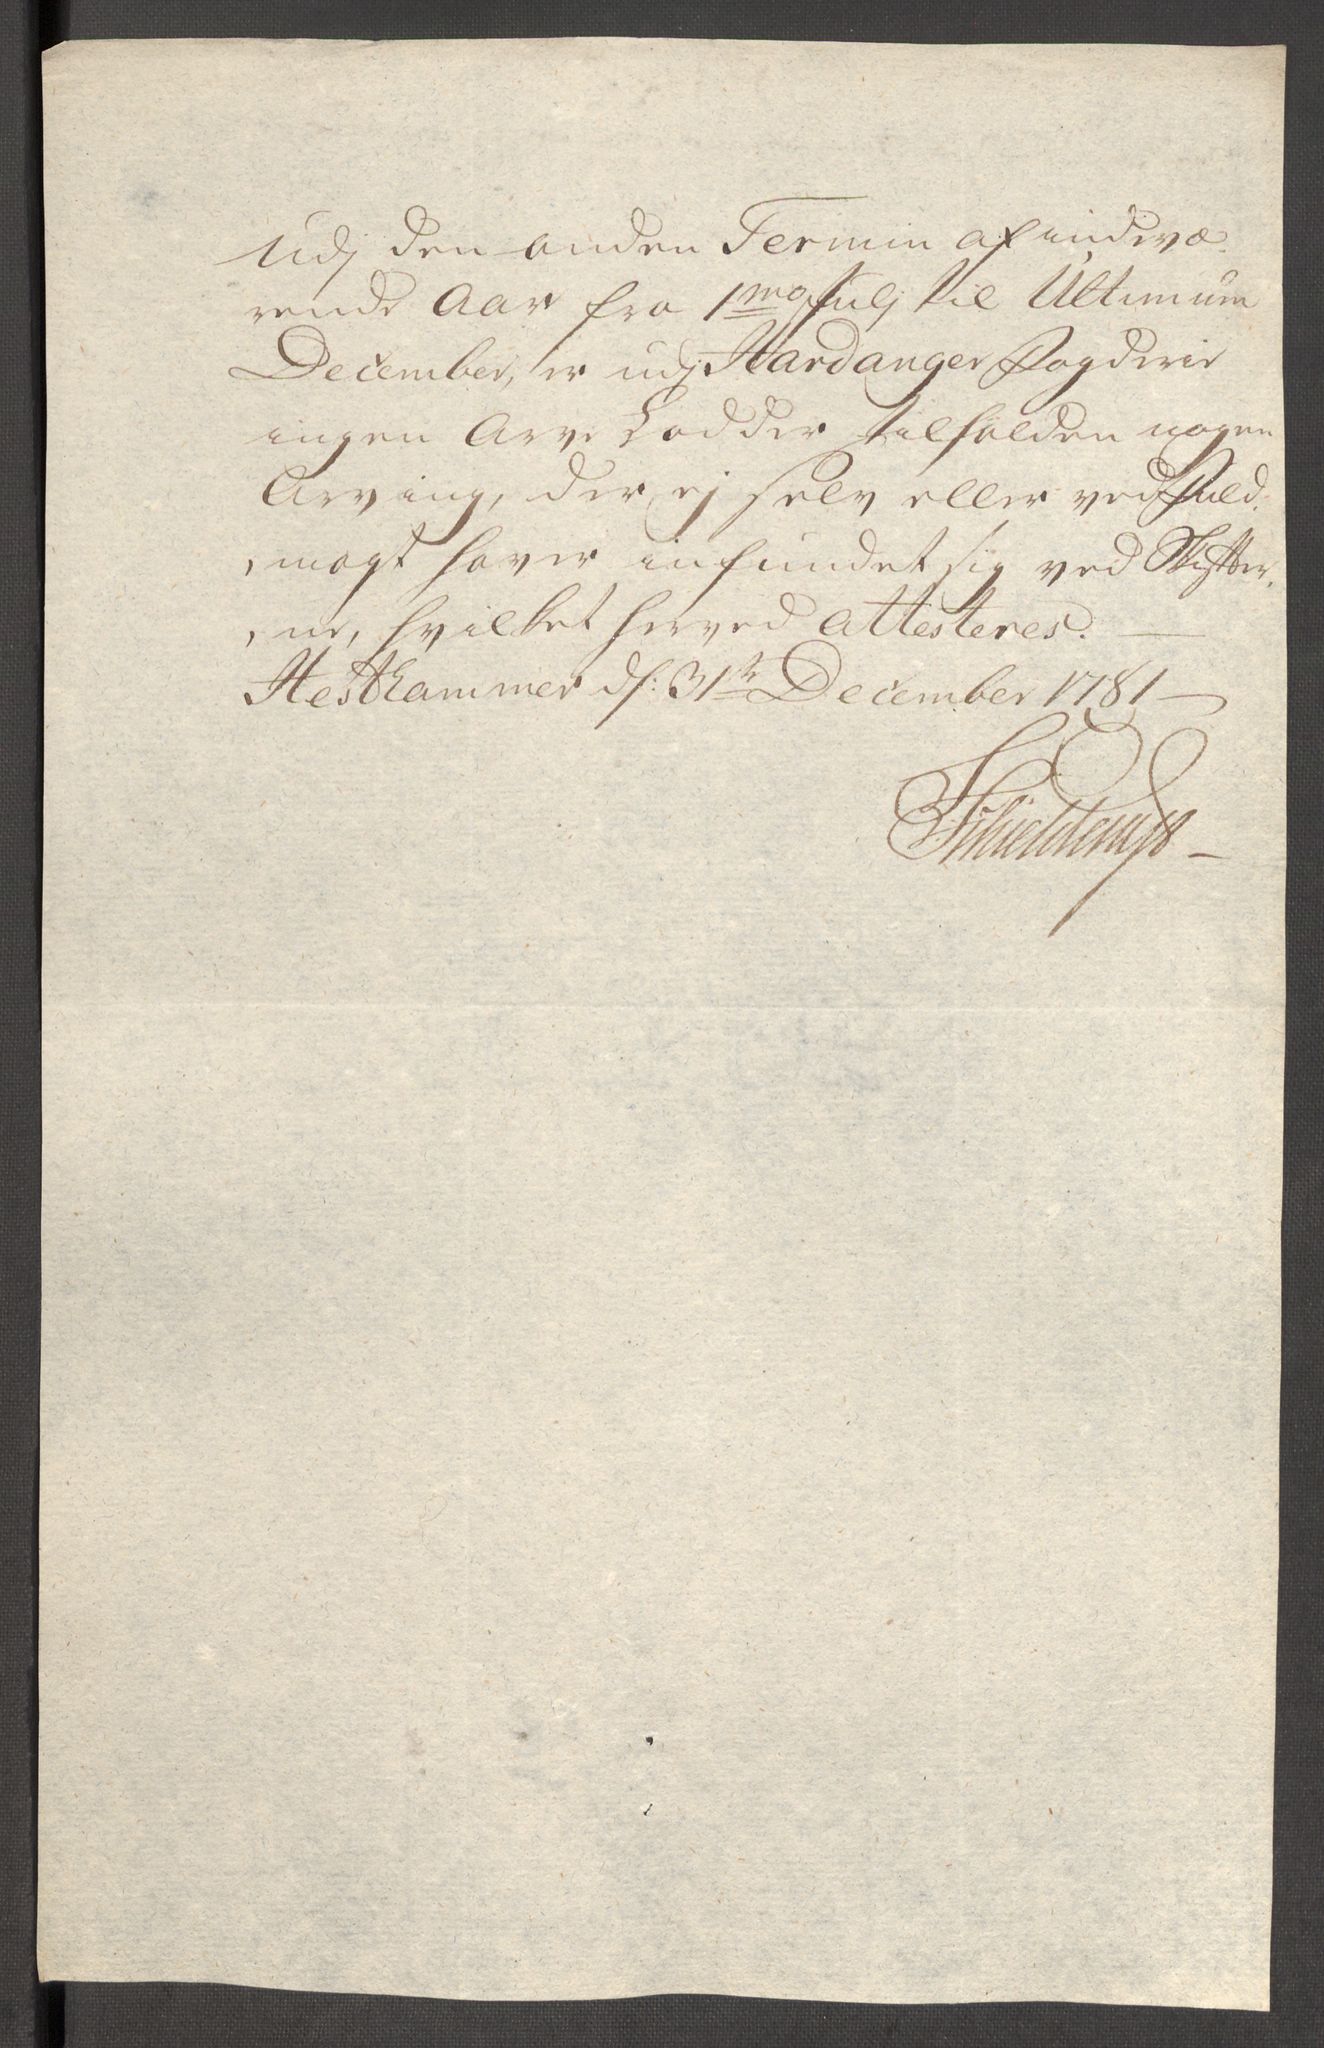 Udj den anden Termin af indevæ-
rende Aar fra 1mo Julj til Ultimum
December, er udj Hardanger Fogderie
ingen Arve Lodder tilfalden nogen
Arving, der ej selv eller ved Fuld-
magt haver infundet sig ved Skifter-
ne, hvilket herved Attesteres.
Hesthammer d: 31te December 1781